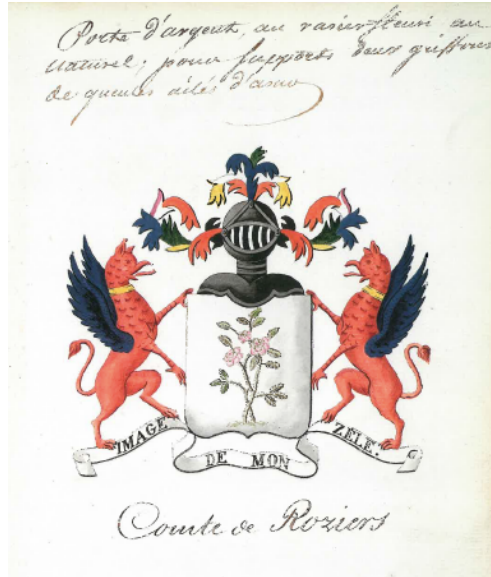 Porte d'argent, au rosier fleuri au
naturel; pour supports deux griffons
de gueules ailés d'azur
IMAGE DE MON ZÈLE.
Comte de Roziers